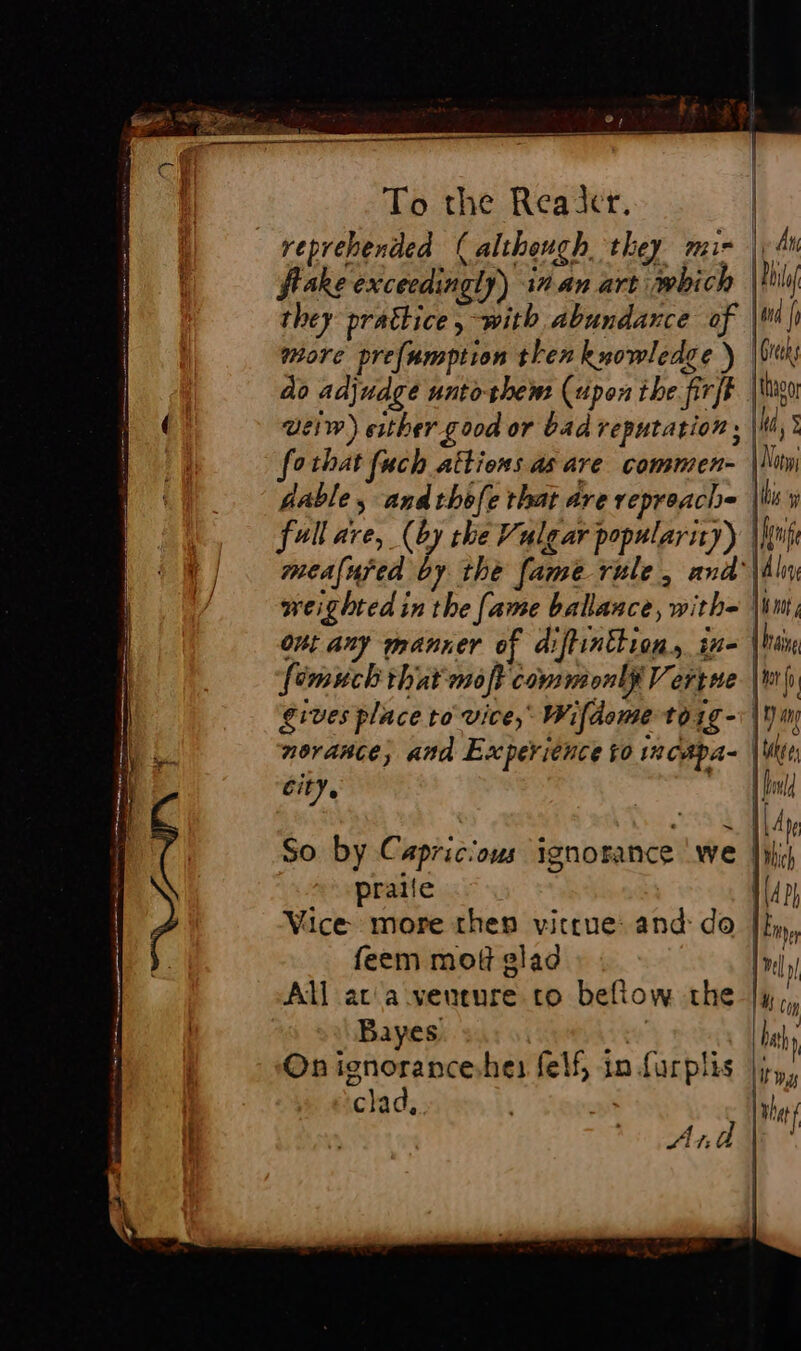 To the Reader.
reprehended (although they mi-
ſtake exceedingly) in an art which
they practice, with abundance of
more preſumption then knowledge)
do adjudge unto them (upon the firſt
veiw) either good or bad reputation;
ſo that ſuch actions as are commen-
dable, and thoſe that are reproach-
full are, (by the Vulgar popularity)
meaſured by the ſame rule, and
weighted in the ſame ballance, with-
out any manner of diſtinction, in-
ſomuch that moſt commonly Vertue
gives place to vice, Wiſdome to ig-
norance, and Experience to incapa-
city.
So by Capricious ignorance we
praiſe
Vice more then vittue and do
ſeem moſt glad
All at a venture to beſtow the
Bayes
On ignorance her ſelf, in ſurplis
clad,
And